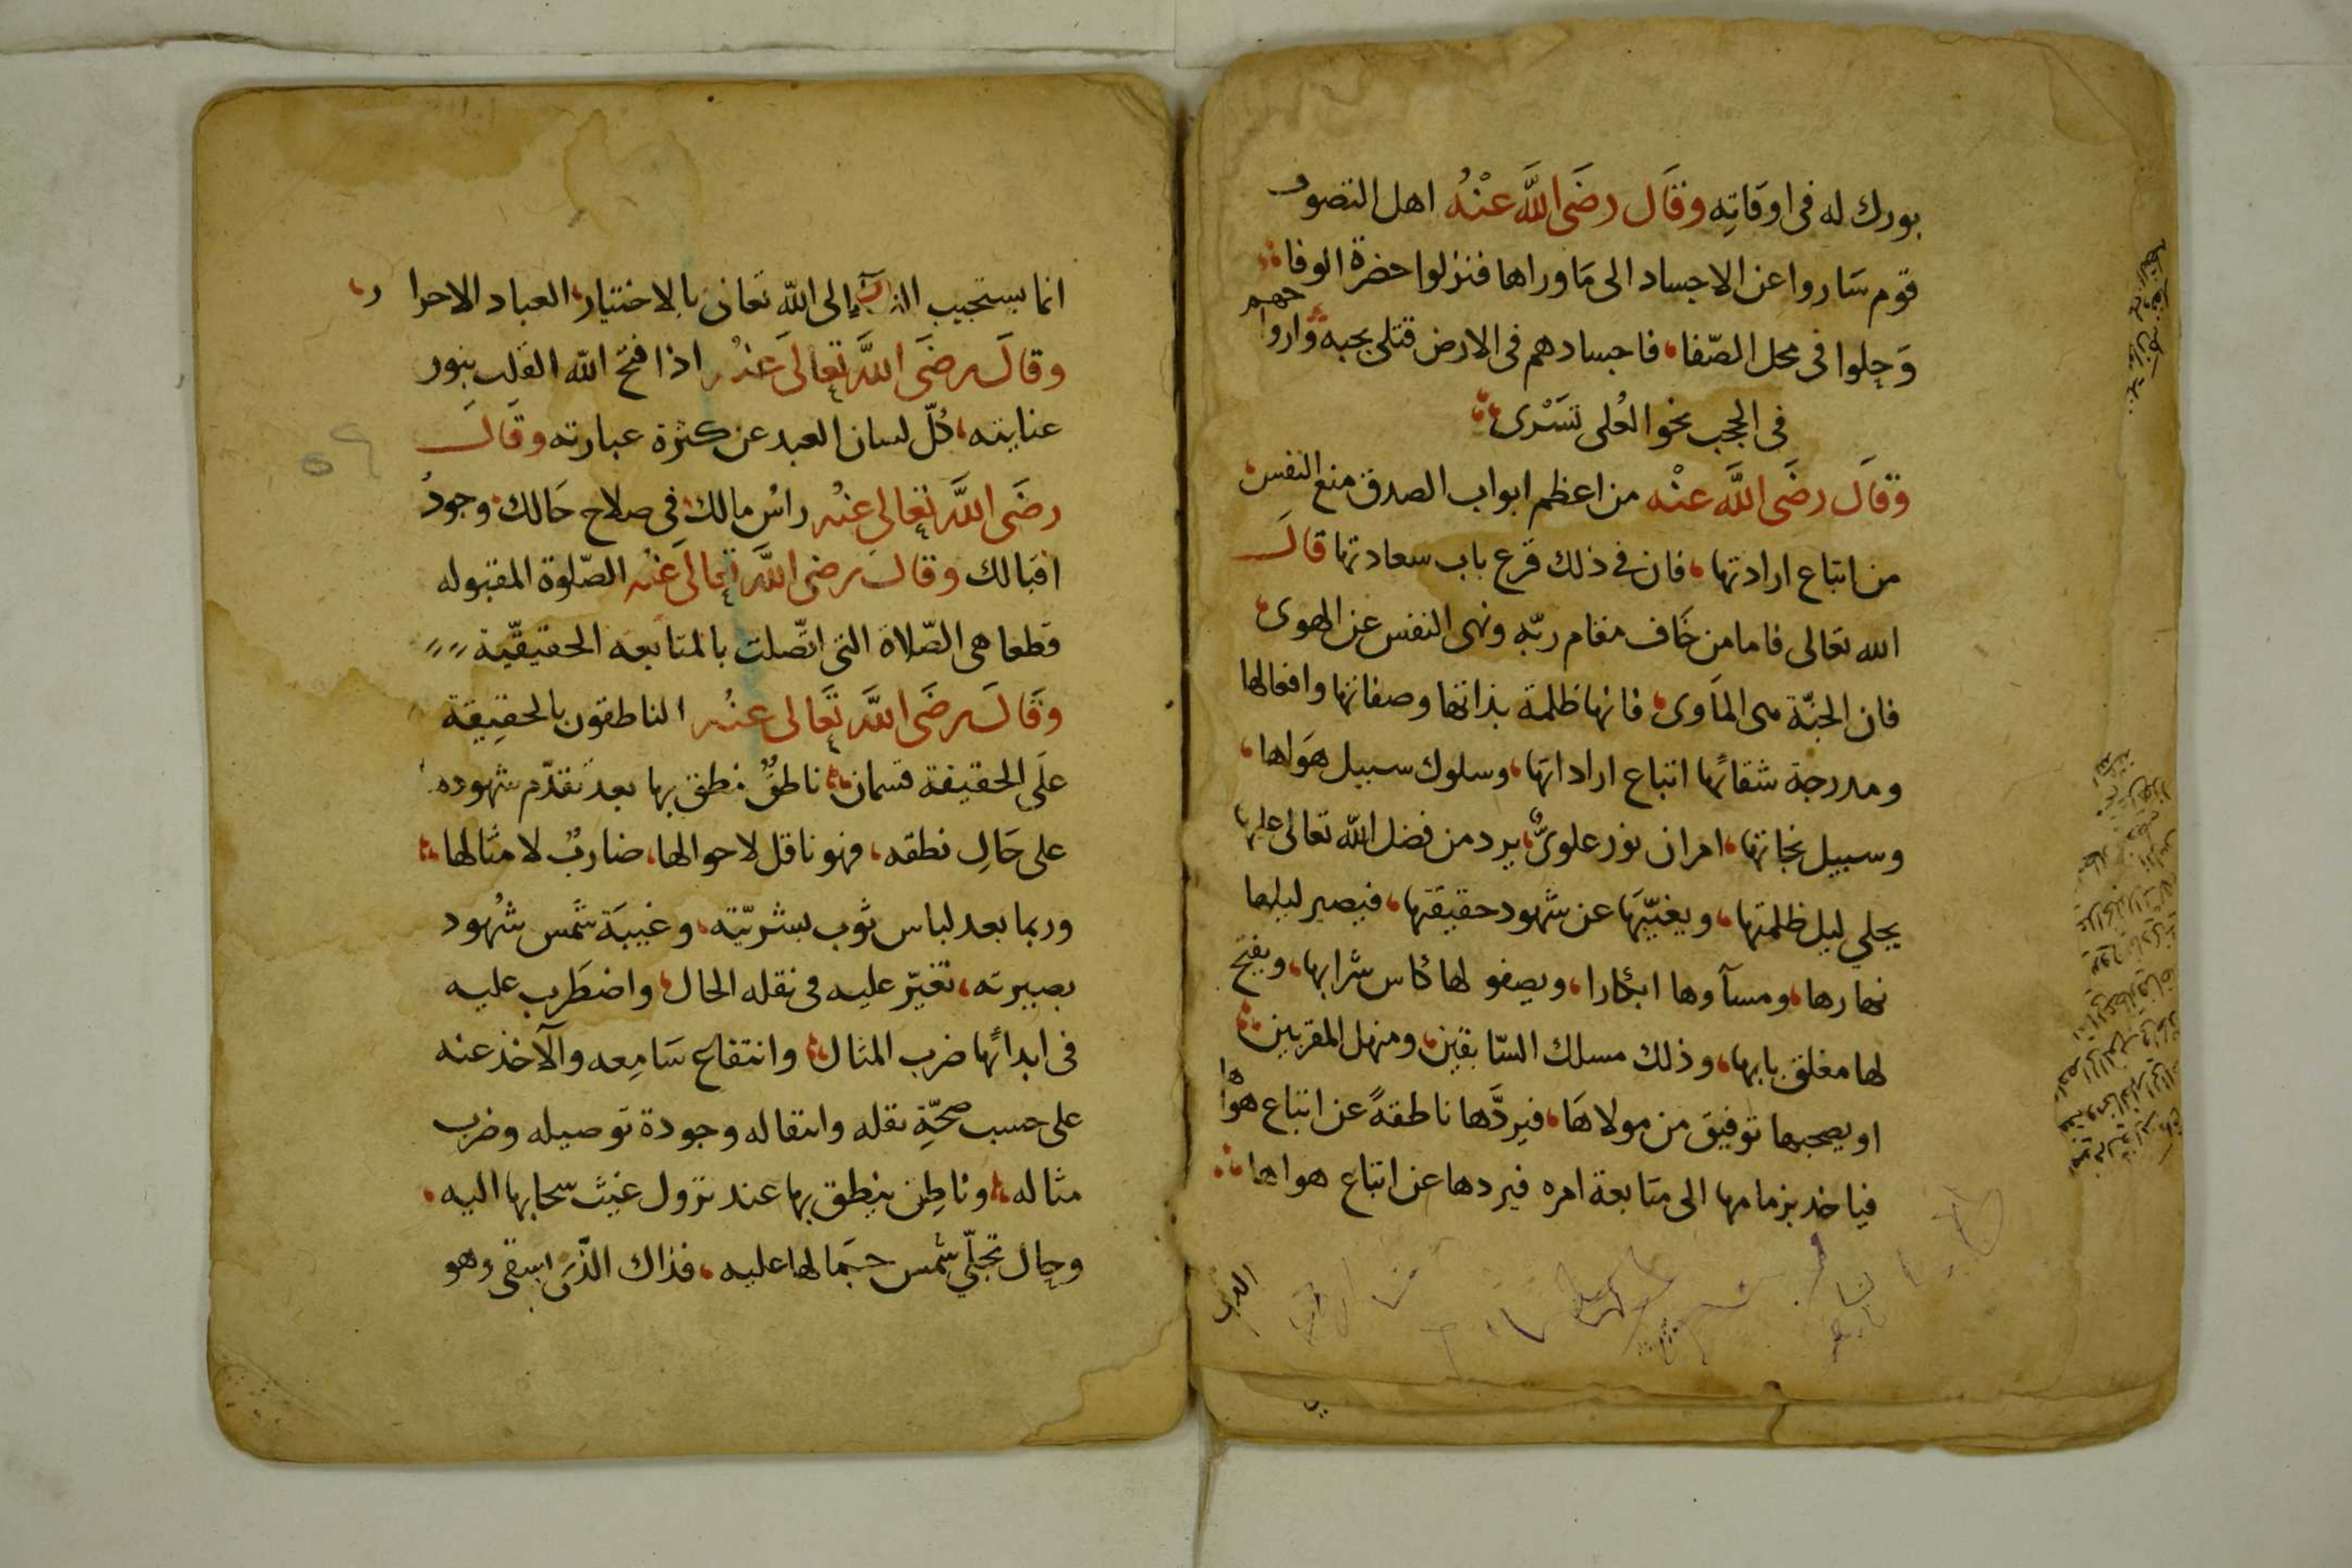 بورك له فى اوقاته وقال رضى الله عنه اهل التصوف
قوم ساروا عن الاجساد الى ما وراها فنزلوا حضرة الوفا
وحلوا فى محل الصفا، فاجسادهم فى الارض قتلى بحبه وارواحهم
فى الحجب نحو العلى تسرى
وقال رضى الله عنه من اعظم ابواب الصدق منع النفس
من اتباع ارادتها، فان فى ذلك قرع باب سعادتها قال
الله تعالى فاما من خاف مقام ربه ونهى النفس عن الهوى
فان الجنة هى الماوى، فانها ظلمة بذاتها وصفاتها وافعالها
ومدرجة شقائها اتباع اراداتها، وسلوك سبيل هواها،
وسبيل نجاتها، امران نور علوى، يرد من فضل الله تعالى عليها
يجلي ليل ظلمتها، ويغيبها عن شهود حقيقتها، فيصير ليلها
نهارها، ومسآوها ابكارا، ويصفو لها كاس شرابها، ويفتح
لها مغلق بابها، وذلك مسلك السابقين، ومنهل المقربين
او يصحبها توفيق من مولاها، فيردها ناطقة عن اتباع هواها
فياخذ بزمامها الى متابعة امره فيردها عن اتباع هواها
انما يستجيب الى الله تعالى بالاختيار، العباد الاحرار،
وقال رضى الله تعالى عنه اذا فتح الله القلب بنور
عنايته، كل لسان العبد عن كثرة عبارته وقال
رضى الله تعالى عنه راس مالك فى صلاح حالك وجود
اقبالك وقال رضى الله تعالى عنه الصلوة المقبوله
قطعا هى الصلاة التى اتصلت بالمتابعه الحقيقية
وقال رضى الله تعالى عنه الناطقون بالحقيقة
على الحقيقة قسمان ناطق نطق بها بعد تقدم شهوده
على حال نطقه، فهو ناقل لاحوالها، ضارب لامثالها
وربما بعد لباس ثوب بشريته، وغيبة شمس شهود
بصيرته، تغير عليه فى نقله الحال، واضطرب عليه
فى ابدائها ضرب المثال، وانتفاع سامعه والآخذ عنه
على حسب صحة نقله وانتقاله وجودة توصيله وضرب
مثاله، وناطق ينطق بها عند نزول غيث سحابها اليه،
وحال تجلي شمس جمالها عليه، فذاك الذى اسقى وهو